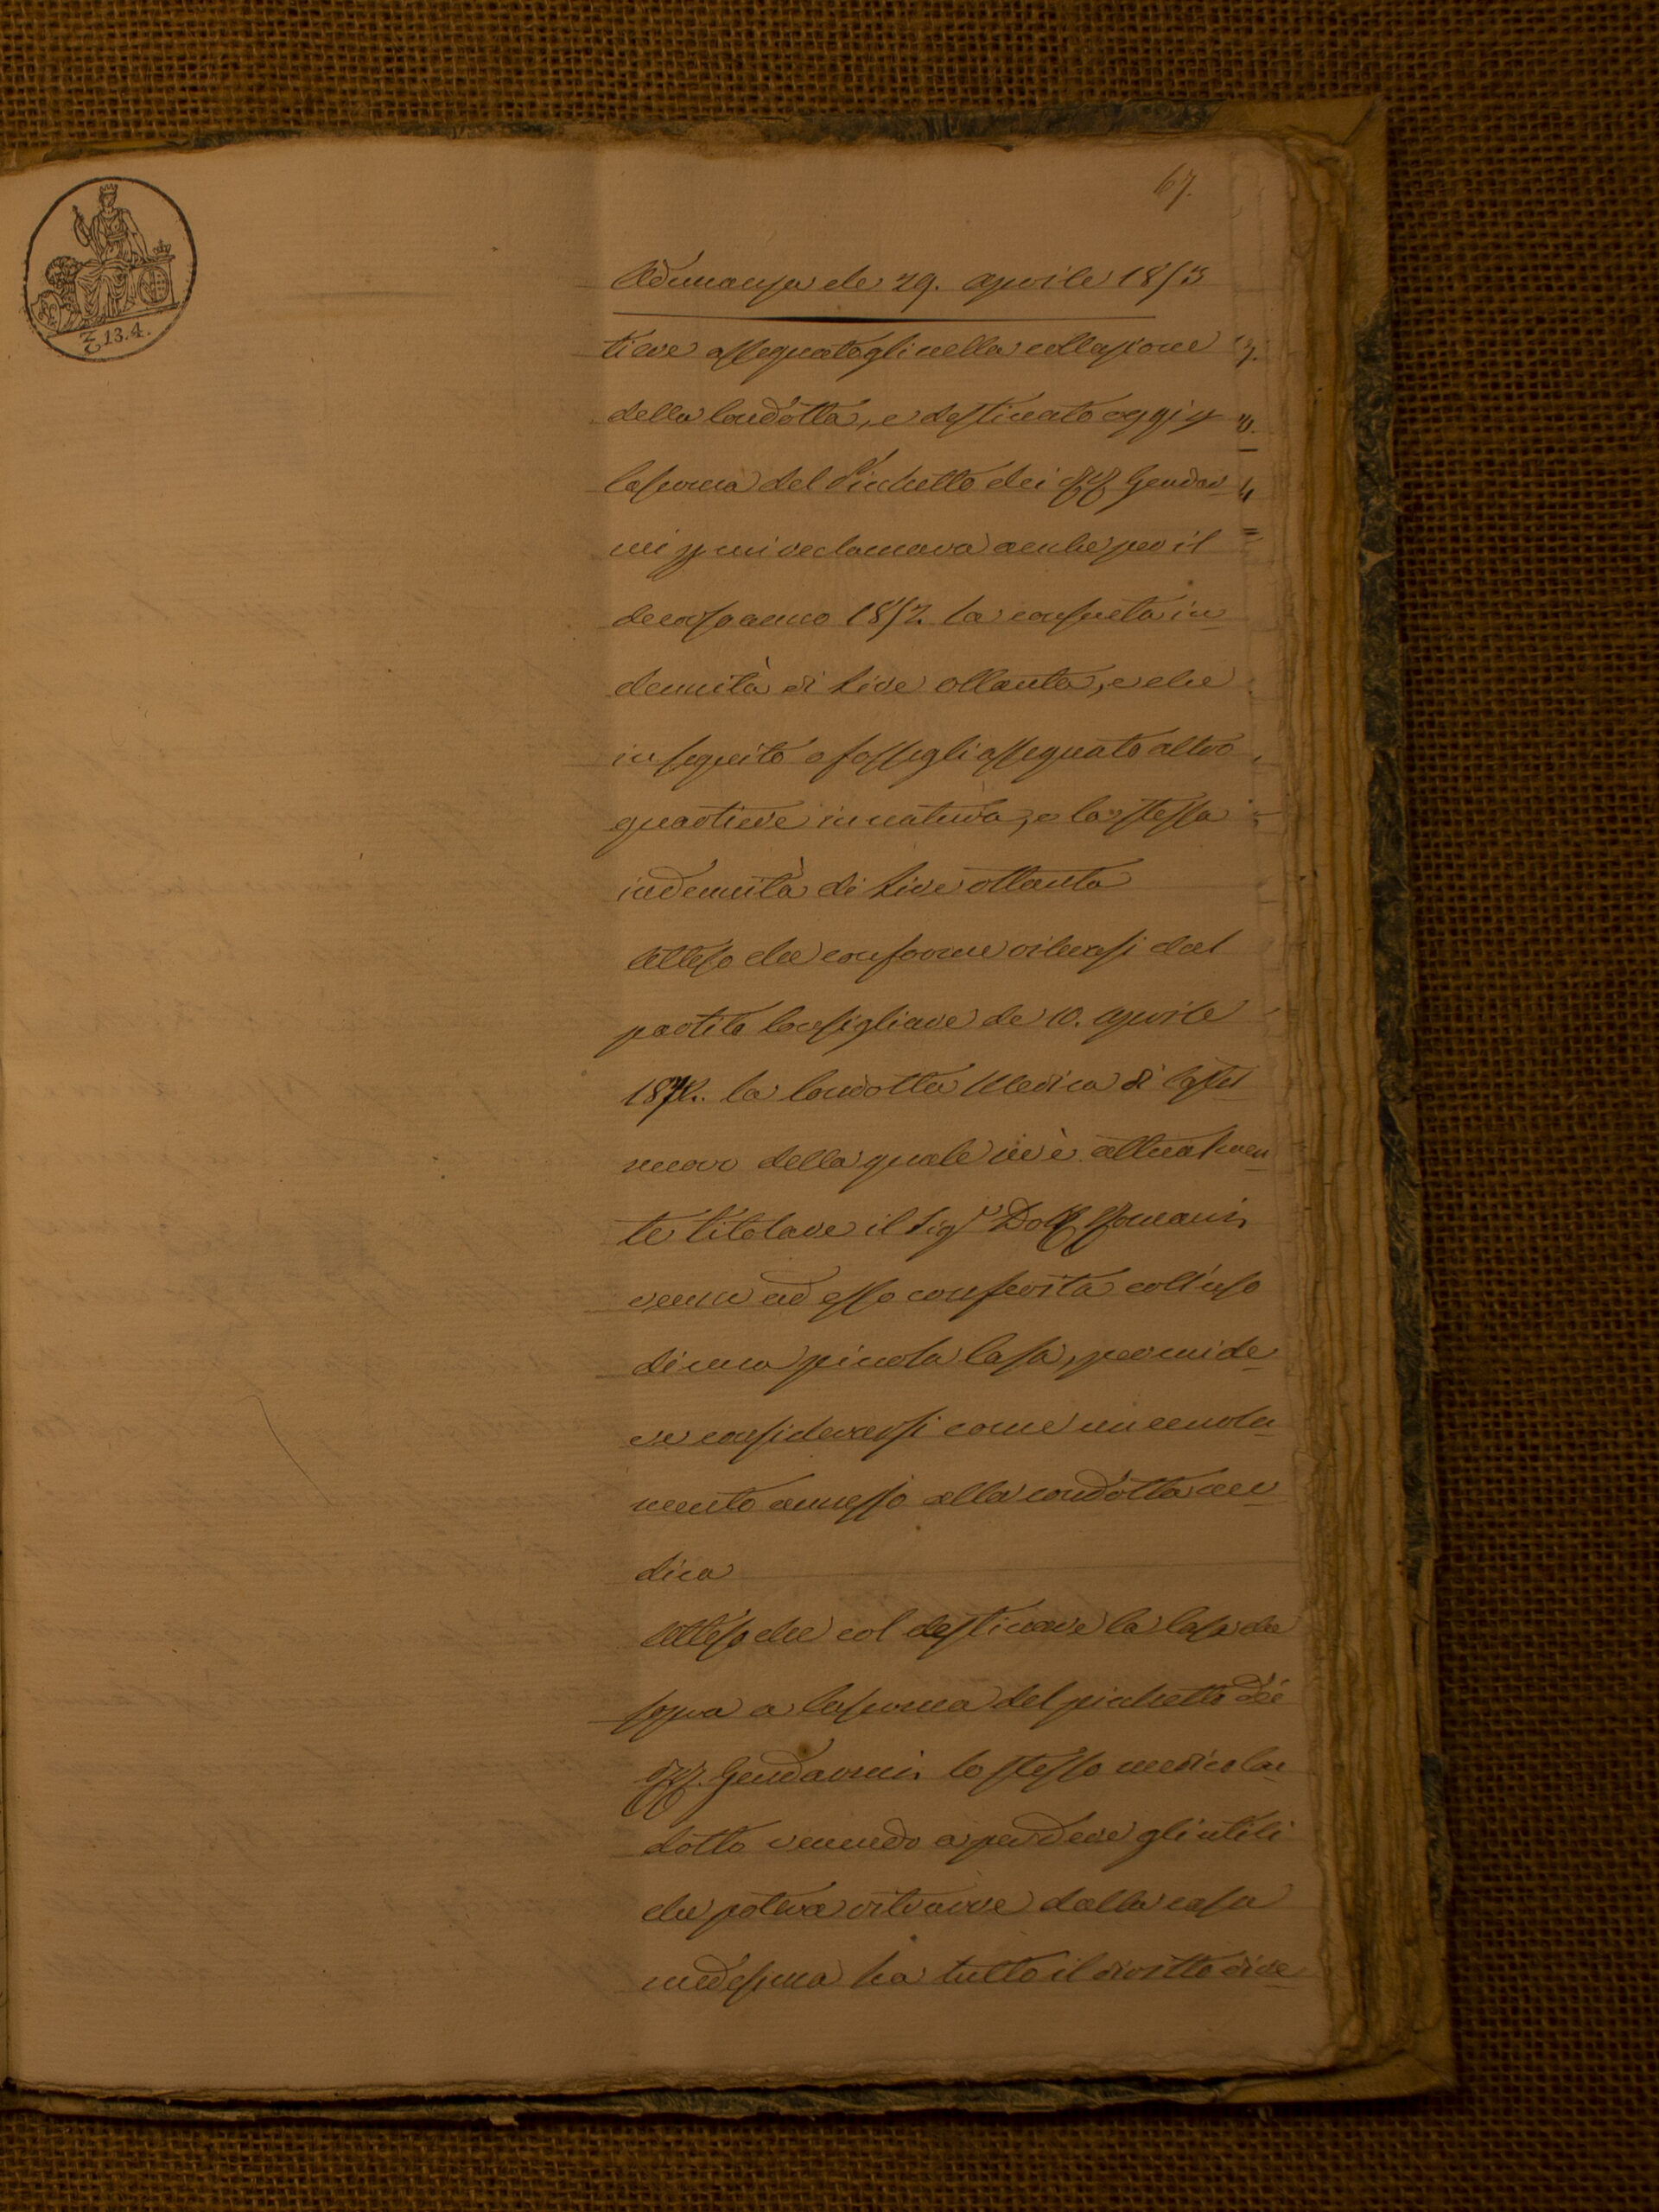 67.
Adunanza de 29. aprile 1853
tiere assegnatogli nella collazione
della Condotta, e destinato oggi p
Caserma del Picchetto dei II. RR. Gendar
mi reclamava anche per il
decorso anno 1852. la consueta in
dennità di Lire ottanta, e che
in seguito o fossegli assegnato altro
quartiere in natura, o la stessa
indennità di Lire ottanta
Atteso che conforme rilevasi dal
partito Consigliare de 10. aprile
la Condotta Medica di Castel
nuovo della quale ivi è attualmen
te titolare il Sigr Dott Romanis
venne ad esso conferita coll'uso
di una piccola Casa, per cui de
ve considerarsi come un emolu
mento annesso alla condotta me
dica
Atteso che col destinare la Casa de
sopra a Caserma del picchetto dei
II. RR. Gendarmi, lo stesso medico Con
dotto venendo a perdere gli utili
che poteva ritrarre dalla casa
medesima ha tutto il diritto di re
₤ 13.4.